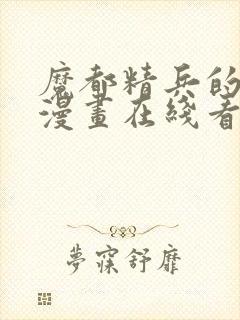 魔都精兵的
漫畫在綫看
夢寐舒靡